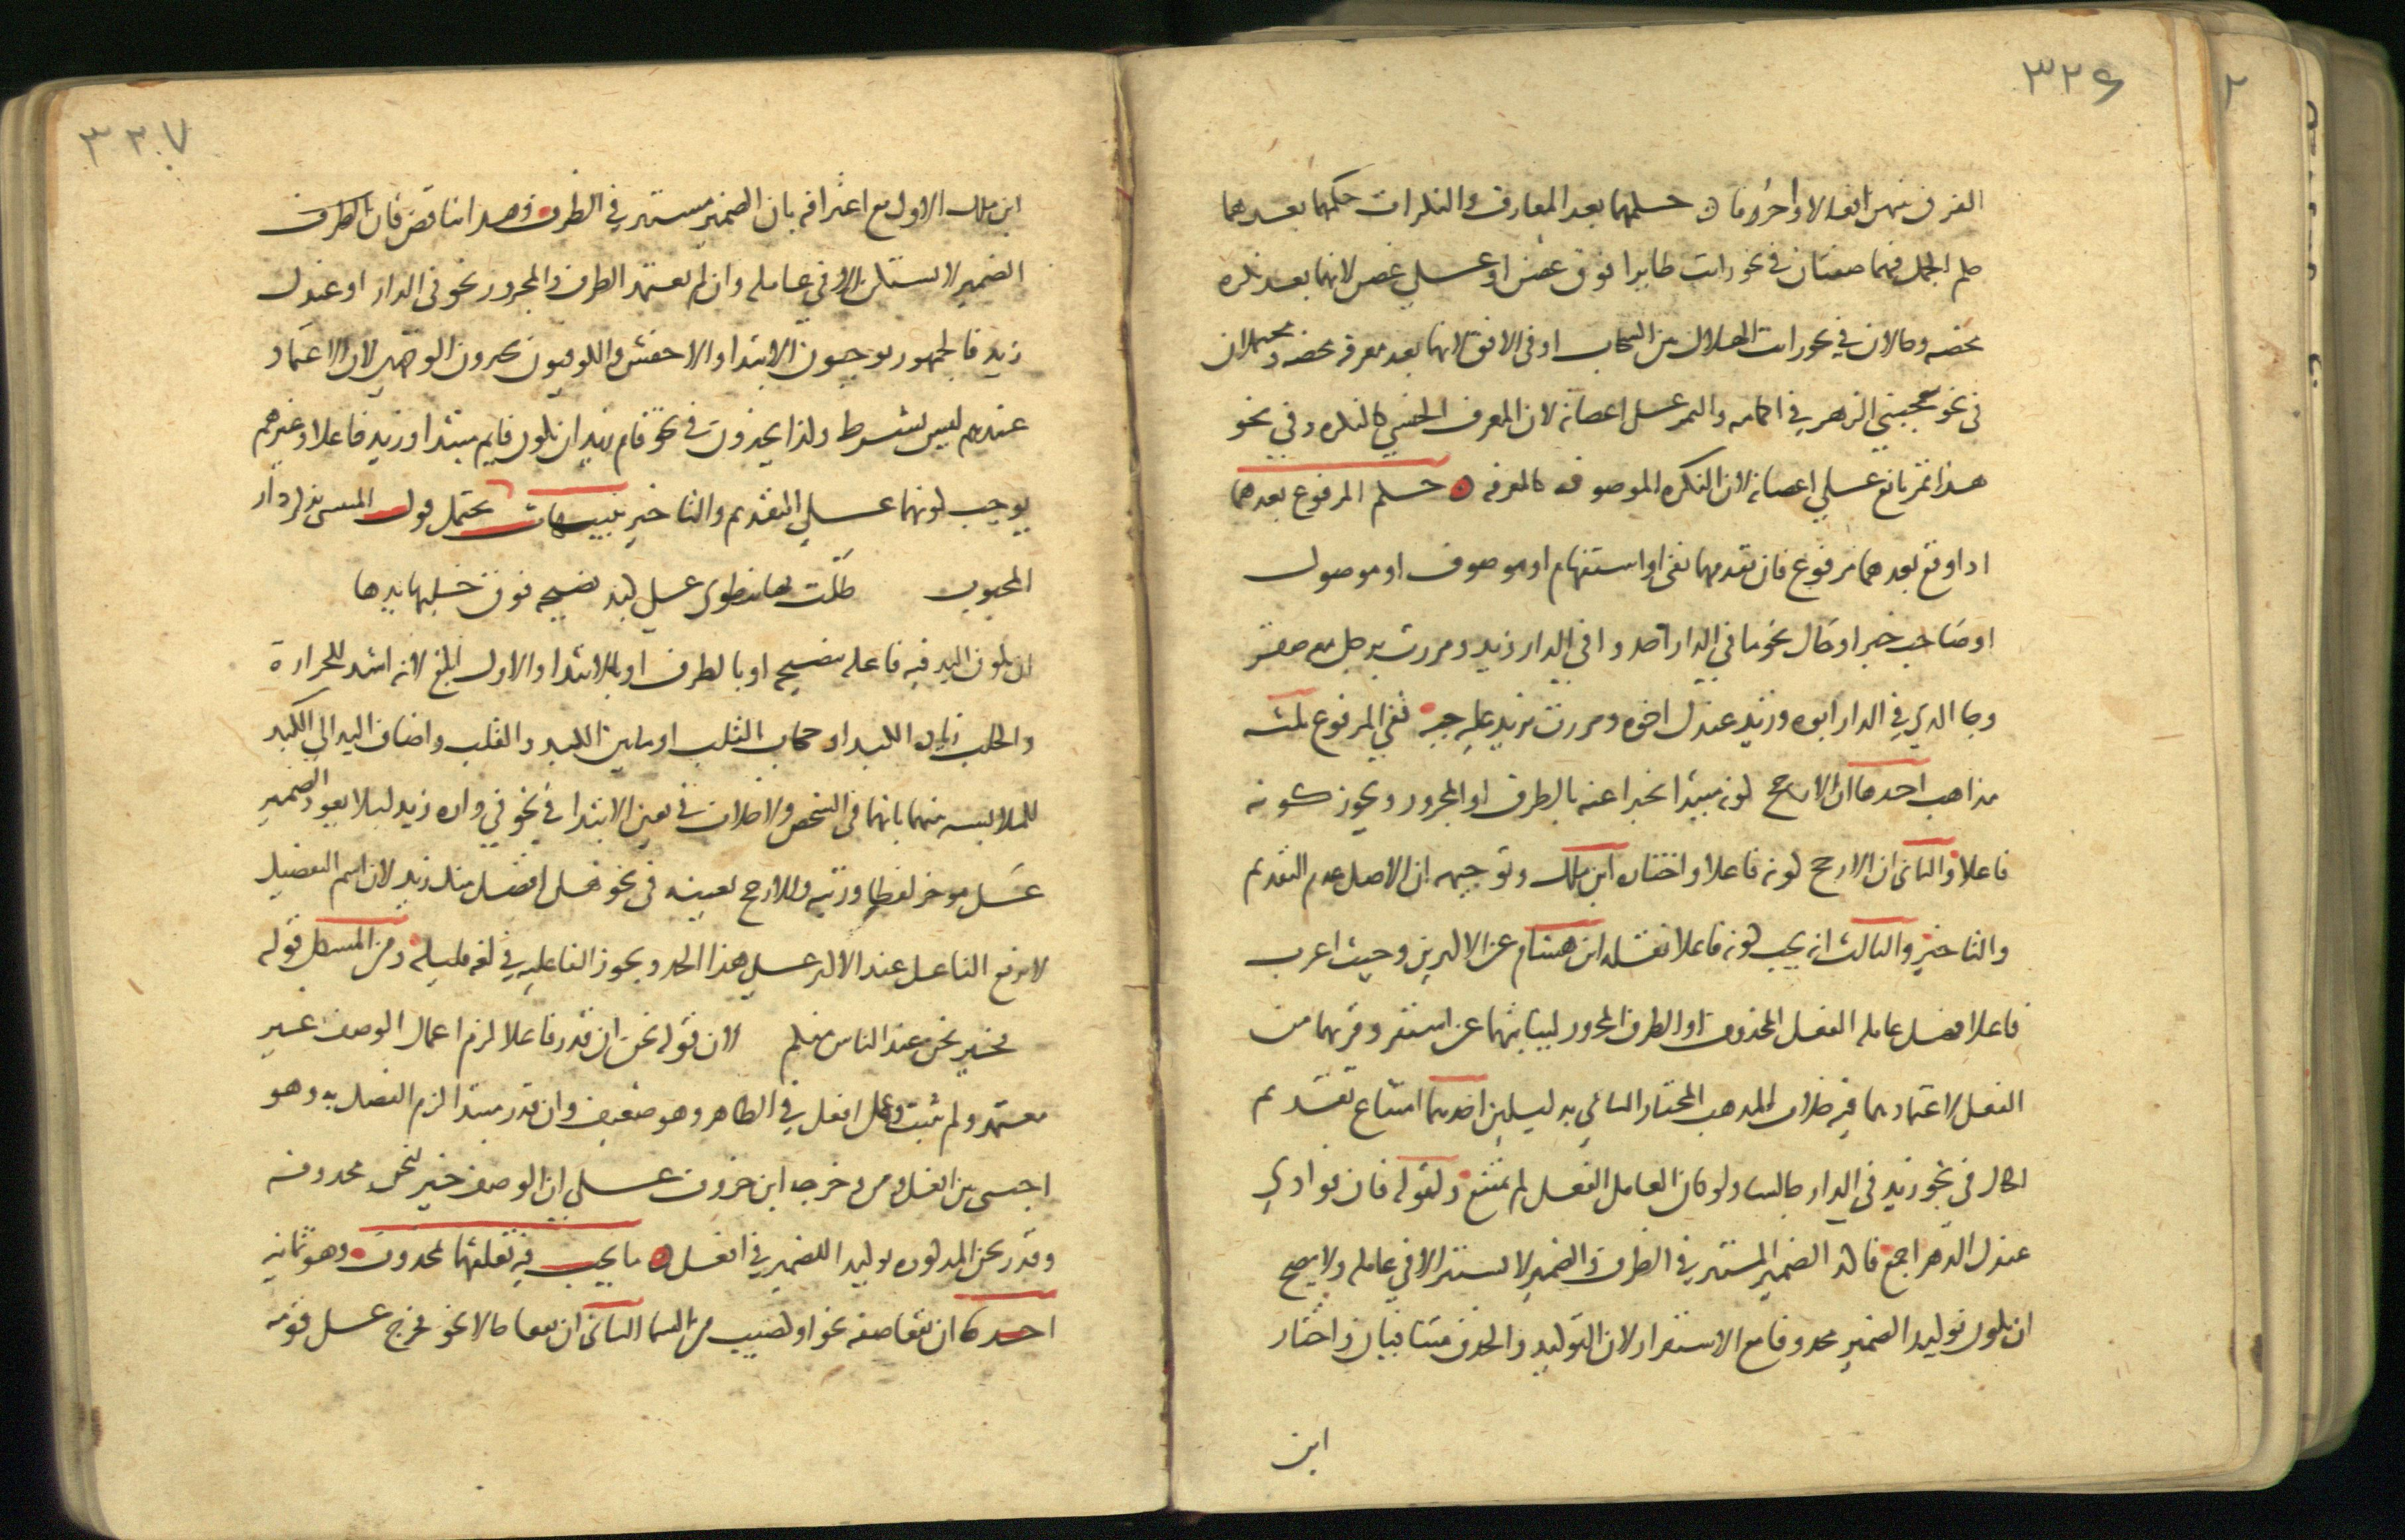 ٣٢٦
الفرق بينهن انعالا واحروفا ٥ حكمهما بعد المعارف والنكرات حكمهما بعدهما
حكم الجمل فهما صفتان في نحو رايت طايرا فوق غصن او على غصن لانهما بعد نكره
محضه وحالان في نحو رايت الهلال بين السحاب او في الافق لانهما بعد معرفه محضه ومحتملان
في نحو يعجبني الزهر في اكمامه والثمر على اغصانه لان المعرف الجنسي كالنكره وفي نحو
هذا ثمر يانع على اغصانه لان النكره الموصوفه كالمعرفه ٥ حكم المرفوع بعدهما
اذا وقع بعدهما مرفوع فان تقدمهما نفي او استفهام او موصوف او موصول
او صاحب خبر او حال نحو ما في الدار احد وافي الدار زيد ومررت برجل معه صقر
وجا الذي في الدار ابوه وزيد عندك اخوه ومررت بزيد عليه جبه ففي المرفوع ثلثه
مذاهب احدها ان الارجح كونه مبتدا مخبرا عنه بالظرف او المجرور ويجوز كونه
فاعلا والثاني ان الارجح كونه فاعلا واختاره ابن ملك وتوجيهه ان الاصل عدم التقديم
والتاخير والثالث انه يجب كونه فاعلا نقله ابن هشام عن الاكثرين وحيث اعرب
فاعلا فهل عامله الفعل المحذوف او الظرف المجرور لنيابتهما عن استقر وقربهما من
الفعل لاعتمادهما فيه خلاف المذهب المختار الثاني بدليلين احدهما امتناع تقديم
الحال في نحو زيد في الدار جالسا ولو كان العامل الفعل لم يمتنع ولقوله فان فوادي
عندك الدهر اجمع فاكد الضمير المستتر في الظرف والضمير لا يستتر الا في عامله ولا يصح
ان يكون توكيدا لضمير محذوف مع الاستقرار لان التوكيد والحذف متنافيان واختار
ابن
٣٢٧
ابن ملك الاول مع اعترافه بان الضمير مستتر في الظرف وهذا تناقض فان الظرف
الضمير لا يستكن الا في عامله وان لم يعتمد الظرف والمجرور نحو في الدار او عندك
زيد فالجمهور يوجبون الابتدا والاخفش والكوفيون يجيزون الوجهين لان الاعتماد
عندهم ليس بشرط ولذا يجيزون في نحو قام زيد ان يكون قايم مبتدا وزيد فاعلا وغيرهم
يوجب كونهما على التقديم والتاخير تنبيهات يحتمل قول المتنبي يذكر دار
المحبوب ظلت بها تنطوي على كبد نضيجه فوق خلبها يدها
ان تكون اليد فيه فاعله بنضيجه او بالظرف او بالابتدا والاول ابلغ لانه اشد للحرارة
والخلب زياده الكبد او حجاب القلب او ما بين الكبد والقلب واضاف اليد الى الكبد
للملابسه بينهما بانهما في الشخص ولا خلاف في تعين الابتدا في نحو في داره زيد ليلا يعود الضمير
على موخر لفظا ورتبه والارجح تعينه في نحو هل افضل منك زيد لان اسم التفضيل
لا يرفع الفاعل عند الاكثر على هذا الحد ويجوز الفاعليه في لغه قليله ومن المشكل قوله
فخير نحن عند الناس منكم لان قوله نحن ان قدر فاعلا لزم اعمال الوصف غير
معتمد ولم يثبت وعمل افعل في الظاهر وهو ضعيف وان قدر مبتدا لزم الفصل به وهو
اجنبي بين افعل ومن وخرجه ابن خروف على ان الوصف خبر لنحن محذوفه
وقدر نحن المذكوره توكيدا للضمير في افعل ٥ ما يجب فيه تعلقهما بمحذوف وهو ثمانيه
احدها ان يقعا صفه نحو او كصيب من السما الثاني ان يقعا حالا نحو فخرج على قومه